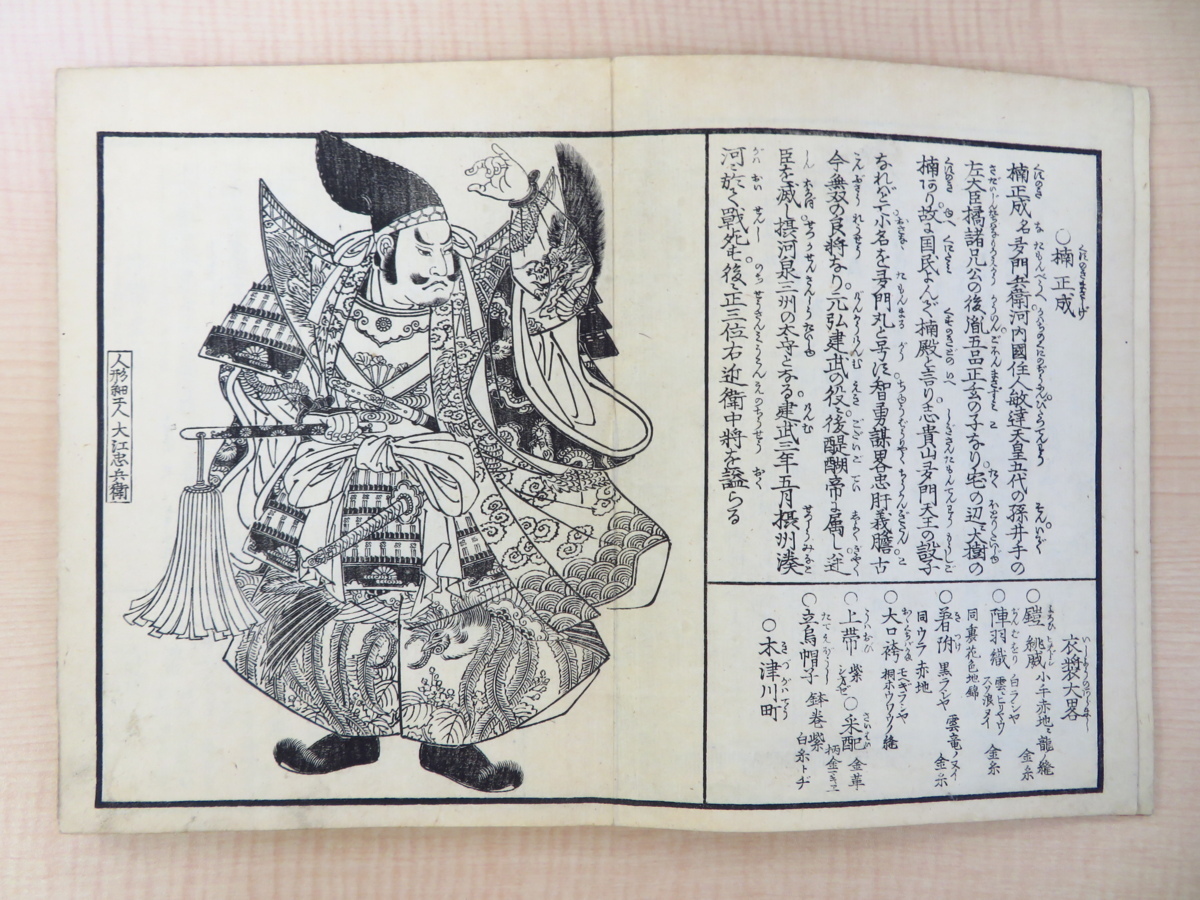 ○楠正成
楠正成ハ名ハ多門兵衛河内國住人敏達天皇五代の孫井手の
左大臣橘諸兄公の後胤五品正玄の子なり宅の辺ニ大樹の
楠あり故に国民よんで楠殿と言り志貴山多門天王の設子
なれバとて小名を多門丸と号に智勇謀畧忠肝義膽古
今無双の良将なり元弘建武の役に後醍醐帝に属し逆
臣を滅し摂河泉三州の太守となる建武三年五月摂州湊
河に於て戦死も後に正三位右近衛中將を謚らる
衣裝大畧
○鎧 緋威 小手赤地ニ龍ノ繍 金糸
○陣羽織 白ラシヤ 雲ニヒリヤウ スソ浪ヌイ 金糸
同裏花色地錦
○着附 黒ラシヤ 雲竜ノヌイ 金糸
同ウラ赤地
○大口袴 モヘギラシヤ 桐ホウワウノ繍
○上帯 紫 ○采配 金革 柄金
○立烏帽子 鉢巻紫 白糸トヂ
○木津川町
人形細工人 大江忠兵衛